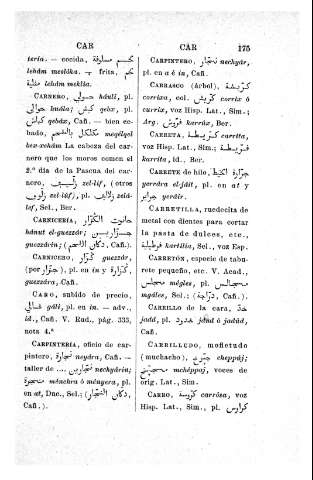 CAR
CÁR
175
teria. — cocida, لحم مسلوقة
lehám meslóka. — frita, لحم
مقلية lehám meklía.
CARNERO, حولي háulí, pl.
حوالي huála; كبش qebx, pl.
كباش qebáx, Cañ. — bien ce-
bado, مكلكل بالشحم
bex-xehám La cabeza del car-
nero que los moros comen el
2.º dia de la Pascua del car-
nero, زليف zel-líf, (otros
زلوف zel-lúf), pl. زلالف zelá-
lef, Sel., Ber.
CARNICERIA, حانوت الكزار
hánut el-guezzár; جزارين
guezzárin; (دكان اللحم, Cañ.).
CARNICERO, كزار guezzár,
(por جزار), pl. en in y كزارة,
guezzára, Cañ.
CARO, subido de precio,
غالي gáli, pl. en in. — adv.,
id., Cañ. V. Rud., pág. 335,
nota 4.ª
CARPINTERIA, oficio de car-
pintero, نجارة neyára, Cañ. —
taller de ..., نجارين nechyárin;
منجرة ménchra ó ményera, pl.
en at, Duc., Sel.; (دكان النجار,
Cañ.).
CARPINTERO, نجار nechyár,
pl. en a é in, Cañ.
CARRASCO (árbol), كريشة
corrixa, col. كريش corrix ó
currix, voz Hisp. Lat., Sim.;
Arg. قروش karrúx, Ber.
CARRETA, كريطة carrita,
voz Hisp. Lat., Sim.; قريطة
karrita, id., Ber.
CARRETE de hilo, جرارة الخيط
yerrára el-jáit, pl. en at y
جراير yeráir.
CARRETILLA, ruedecita de
metal con dientes para cortar
la pasta de dulces, etc.,
قرطيلية kartilia, Sel., voz Esp.
CARRETÓN, especie de tabu-
rete pequeño, etc. V. Acad.,
مجلس mégles, pl. مجالس
mgáles, Sel.; (دراجة, Cañ.).
CARRILLO de la cara, خد
jadd, pl. خدود jdud ó judúd,
Cañ.
CARRILLUDO, mofletudo
(muchacho), جبز cheppáj;
mchéppaj, voces de
orig. Lat., Sim.
CARRO, كروسة carrósa, voz
Hisp. Lat., Sim., pl. كرارس